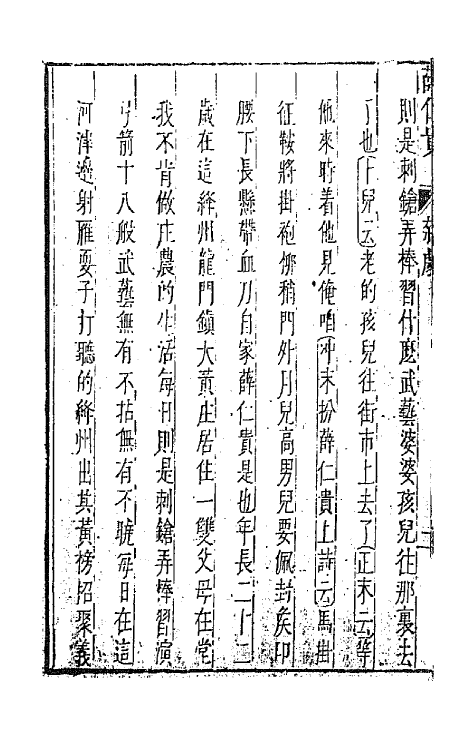 則是刺鎗弄棒習什麽武藝婆婆孩兒往那裏去
了也卜兒云老的孩兒往街市上去了正末云等
他來時着他見俺咱冲末扮薛仁貴上詩云馬掛
征鞍將掛袍栁稍門外月兒高男兒要佩封侯印
腰下長懸帶血刀自家薛仁貴是也年長二十二
歲在這絳州龍門鎮大黃庄居住一雙父母在堂
我不肯做庄農的生活每日則是刺鎗弄棒習演
弓箭十八般武藝無有不拈無有不曉每日在這
河津邊射雁耍子打聽的絳州出其黃榜招聚義